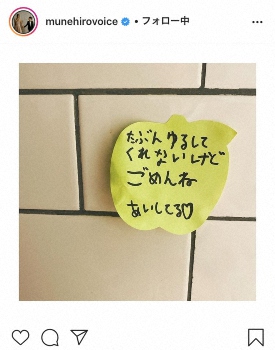 munehirovoice • フォロー中
たぶんゆるして
くれないけど
ごめんね
あいしてる♡